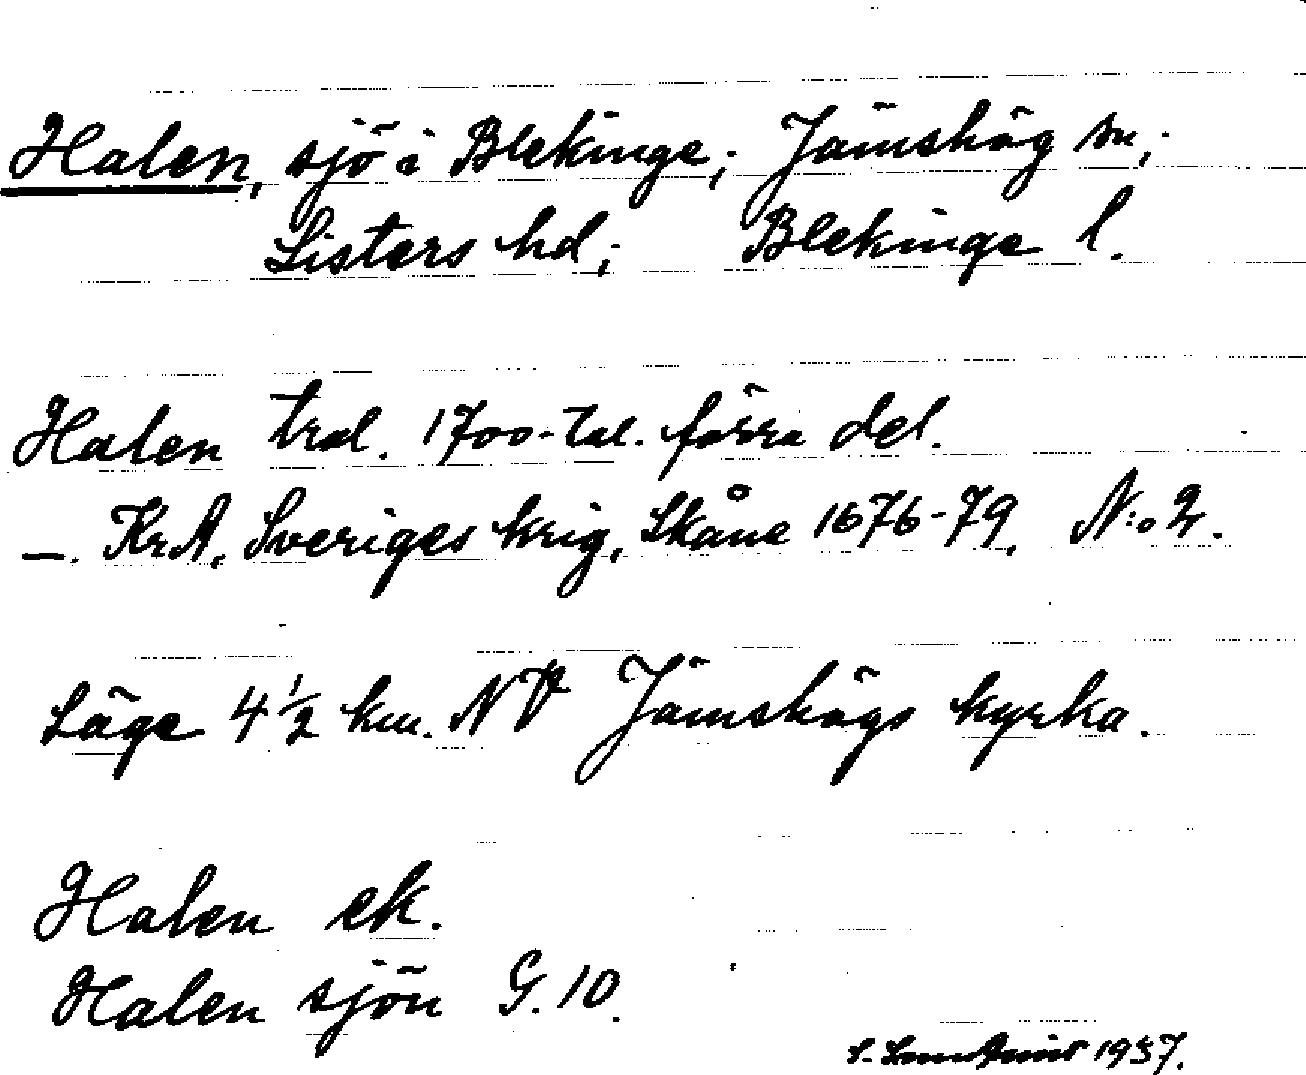 Halen, sjö i Blekinge; Jämshög sn;
Listers hd; Blekinge l.
Halen trol. 1700-tal. förra del.
—. KrA, Sveriges krig, Skåne 1676-79. N:o 2.
Läge 4 1/2 km. NV Jämshögs kyrka.
Halen ek.
Halen sjön G. 10.
1937.